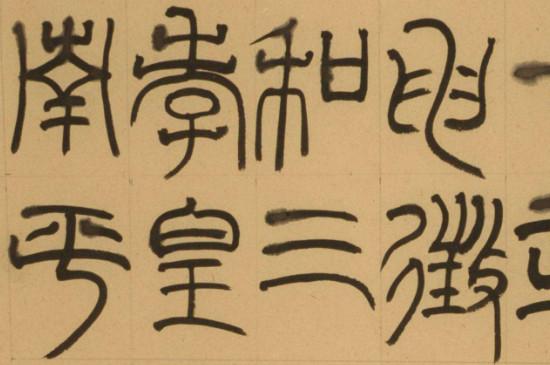 申徵
和三
孝皇
南平